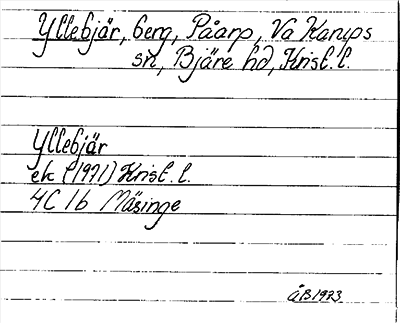 Yllebjär, berg, Påarp, Va Karups
sn, Bjäre hd, Krist. l.
Yllebjär
ek (1971) Krist. l.
4C 1b Mäsinge
ÅB1973